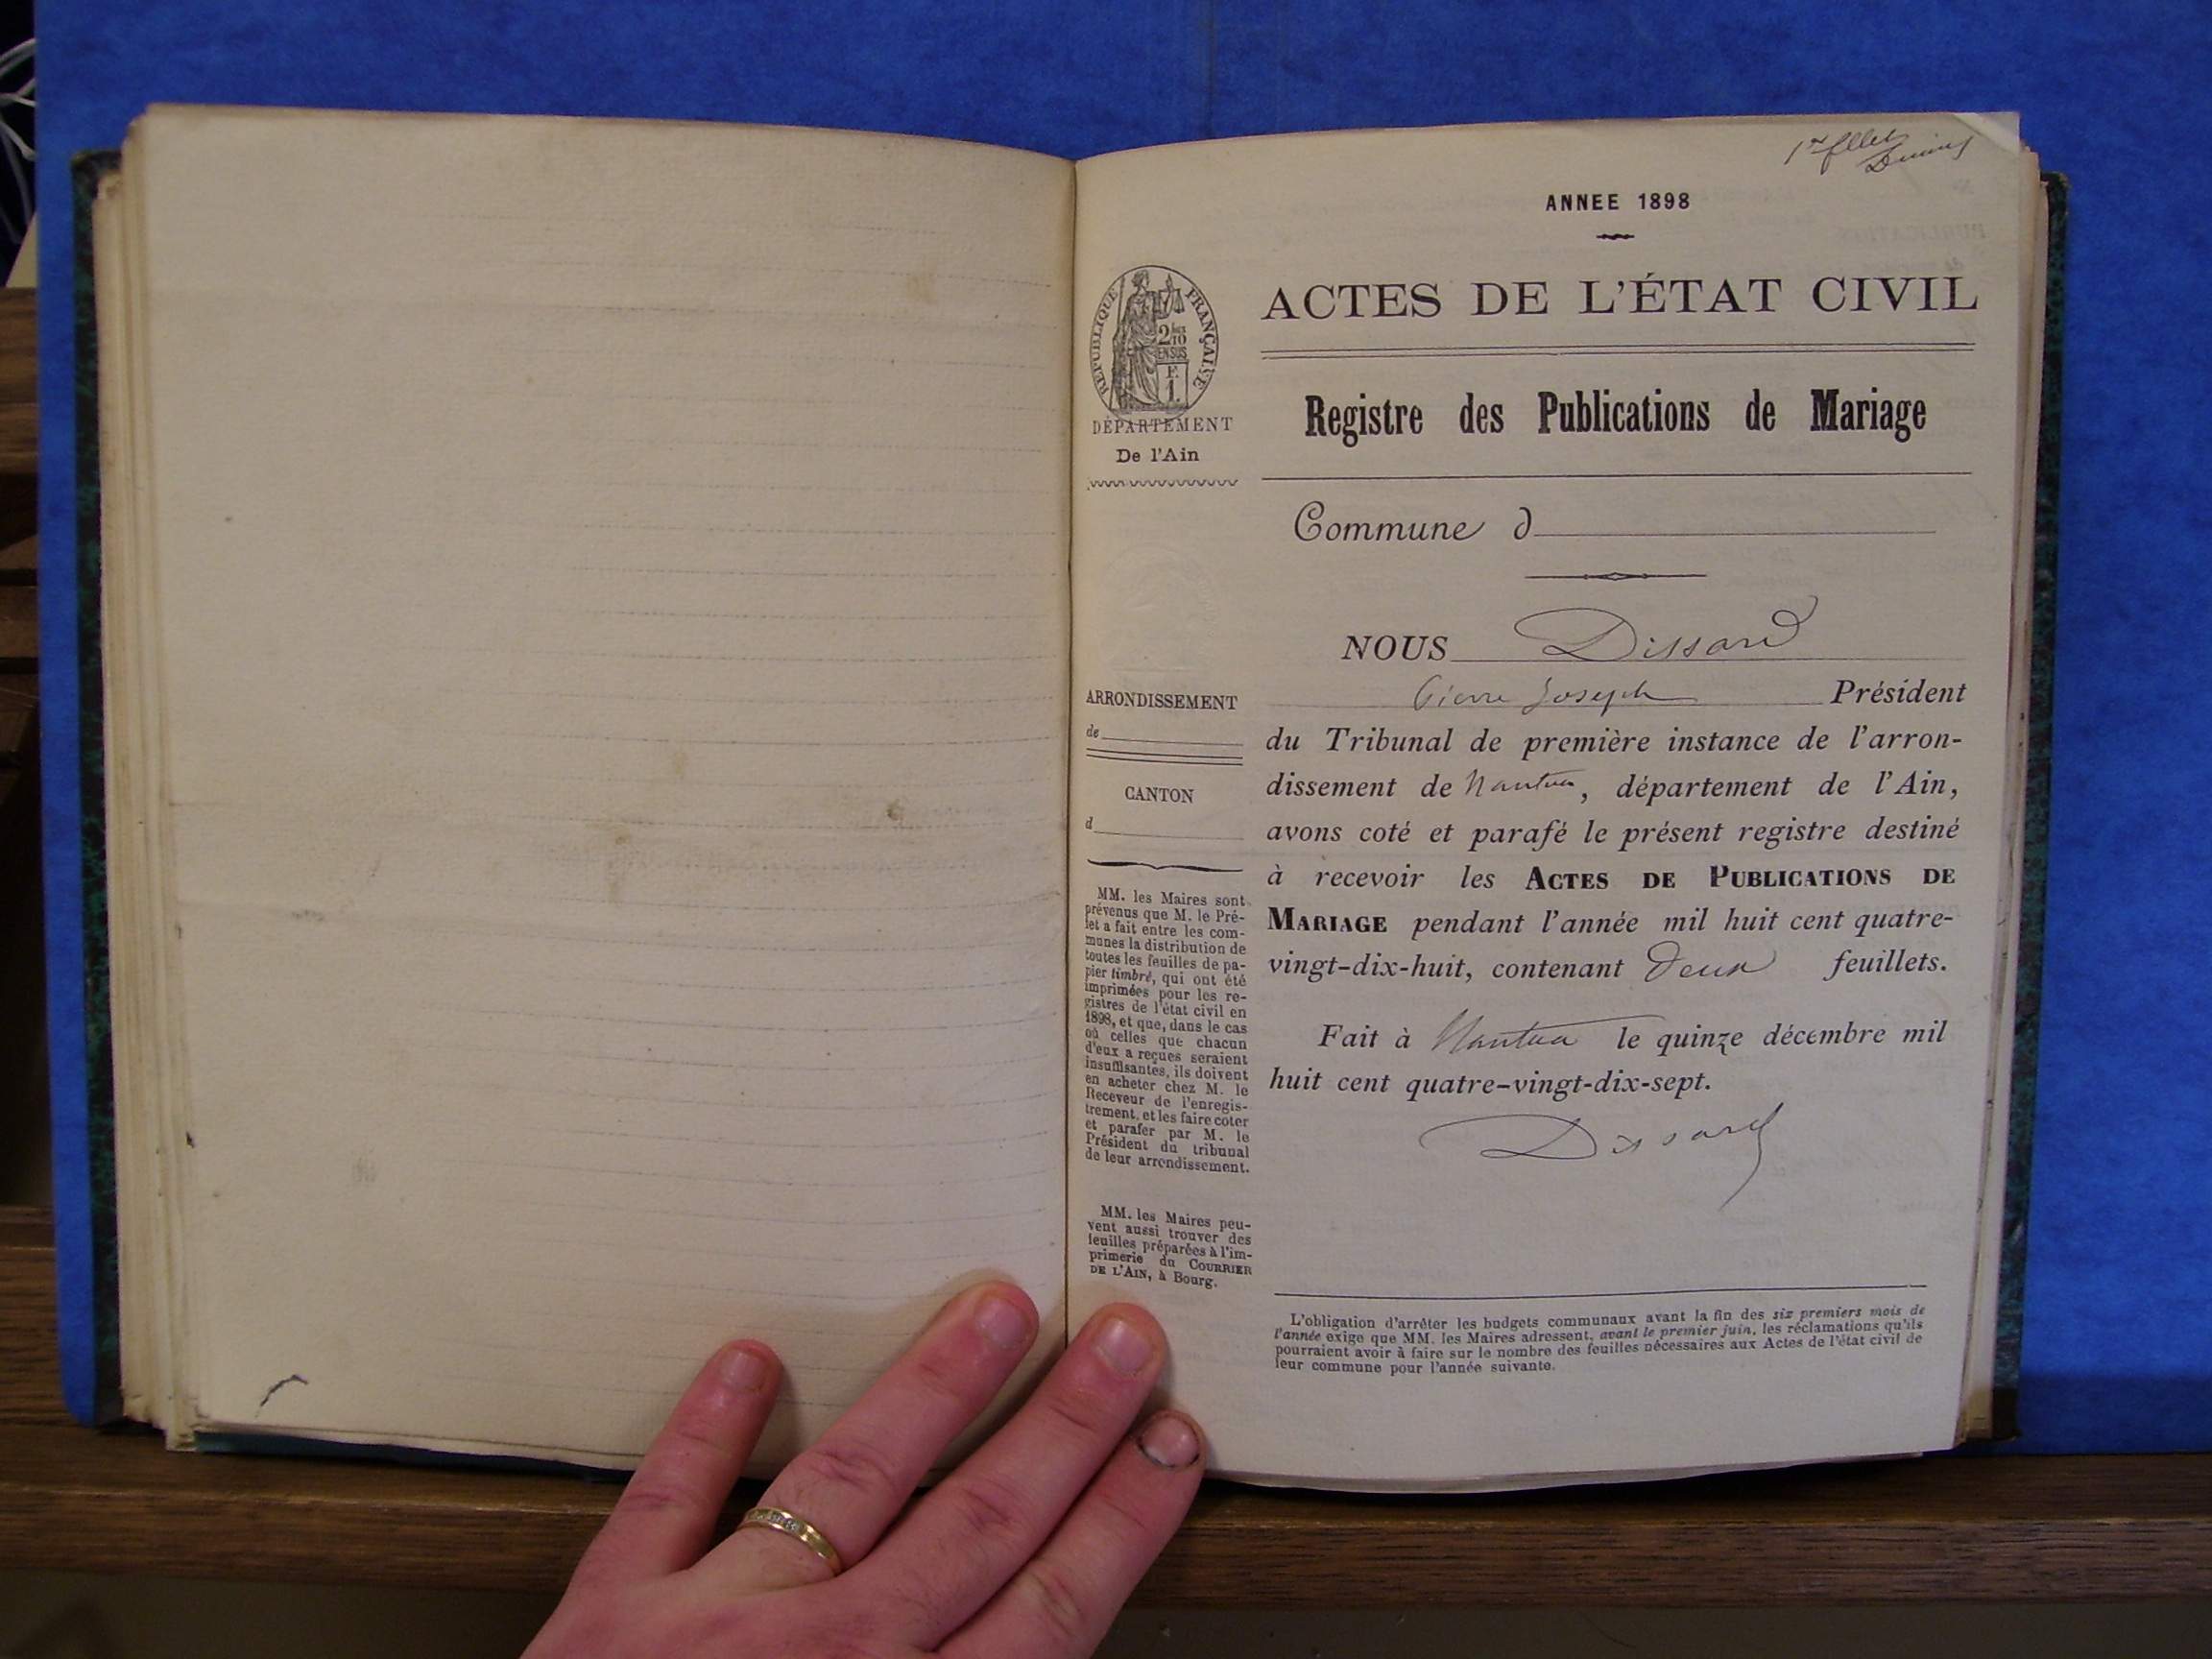 1er fllet
ANNEE 1898
RÉPUBLIQUE FRANÇAISE
DÉPARTEMENT
De l'Ain
ARRONDISSEMENT
de
CANTON
d
MM. les Maires sont
prévenus que M. le Pré-
fet a fait entre les com-
munes la distribution de
toutes les feuilles de pa-
pier timbré, qui ont été
imprimées pour les re-
gistres de l'état civil en
1898, et que, dans le cas
où celles que chacun
d'eux a reçues seraient
insuffisantes, ils doivent
en acheter chez M. le
Receveur de l'enregis-
trement, et les faire coter
et parafer par M. le
Président du tribunal
de leur arrondissement.
MM. les Maires peu-
vent aussi trouver des
feuilles préparées à l'im-
primerie du COURRIER
DE L'AIN, à Bourg.
ACTES DE L'ÉTAT CIVIL
Registre des Publications de Mariage
Commune d
NOUS Dissard
Pierre Joseph Président
du Tribunal de première instance de l'arron-
dissement de Nantua, département de l'Ain,
avons coté et parafé le présent registre destiné
à recevoir les ACTES DE PUBLICATIONS DE
MARIAGE pendant l'année mil huit cent quatre-
vingt-dix-huit, contenant deux feuillets.
Fait à Nantua le quinze décembre mil
huit cent quatre-vingt-dix-sept.
Dissard
L'obligation d'arrêter les budgets communaux avant la fin des six premiers mois de
l'année exige que MM. les Maires adressent, avant le premier juin, les réclamations qu'ils
pourraient avoir à faire sur le nombre des feuilles nécessaires aux Actes de l'état civil de
leur commune pour l'année suivante.